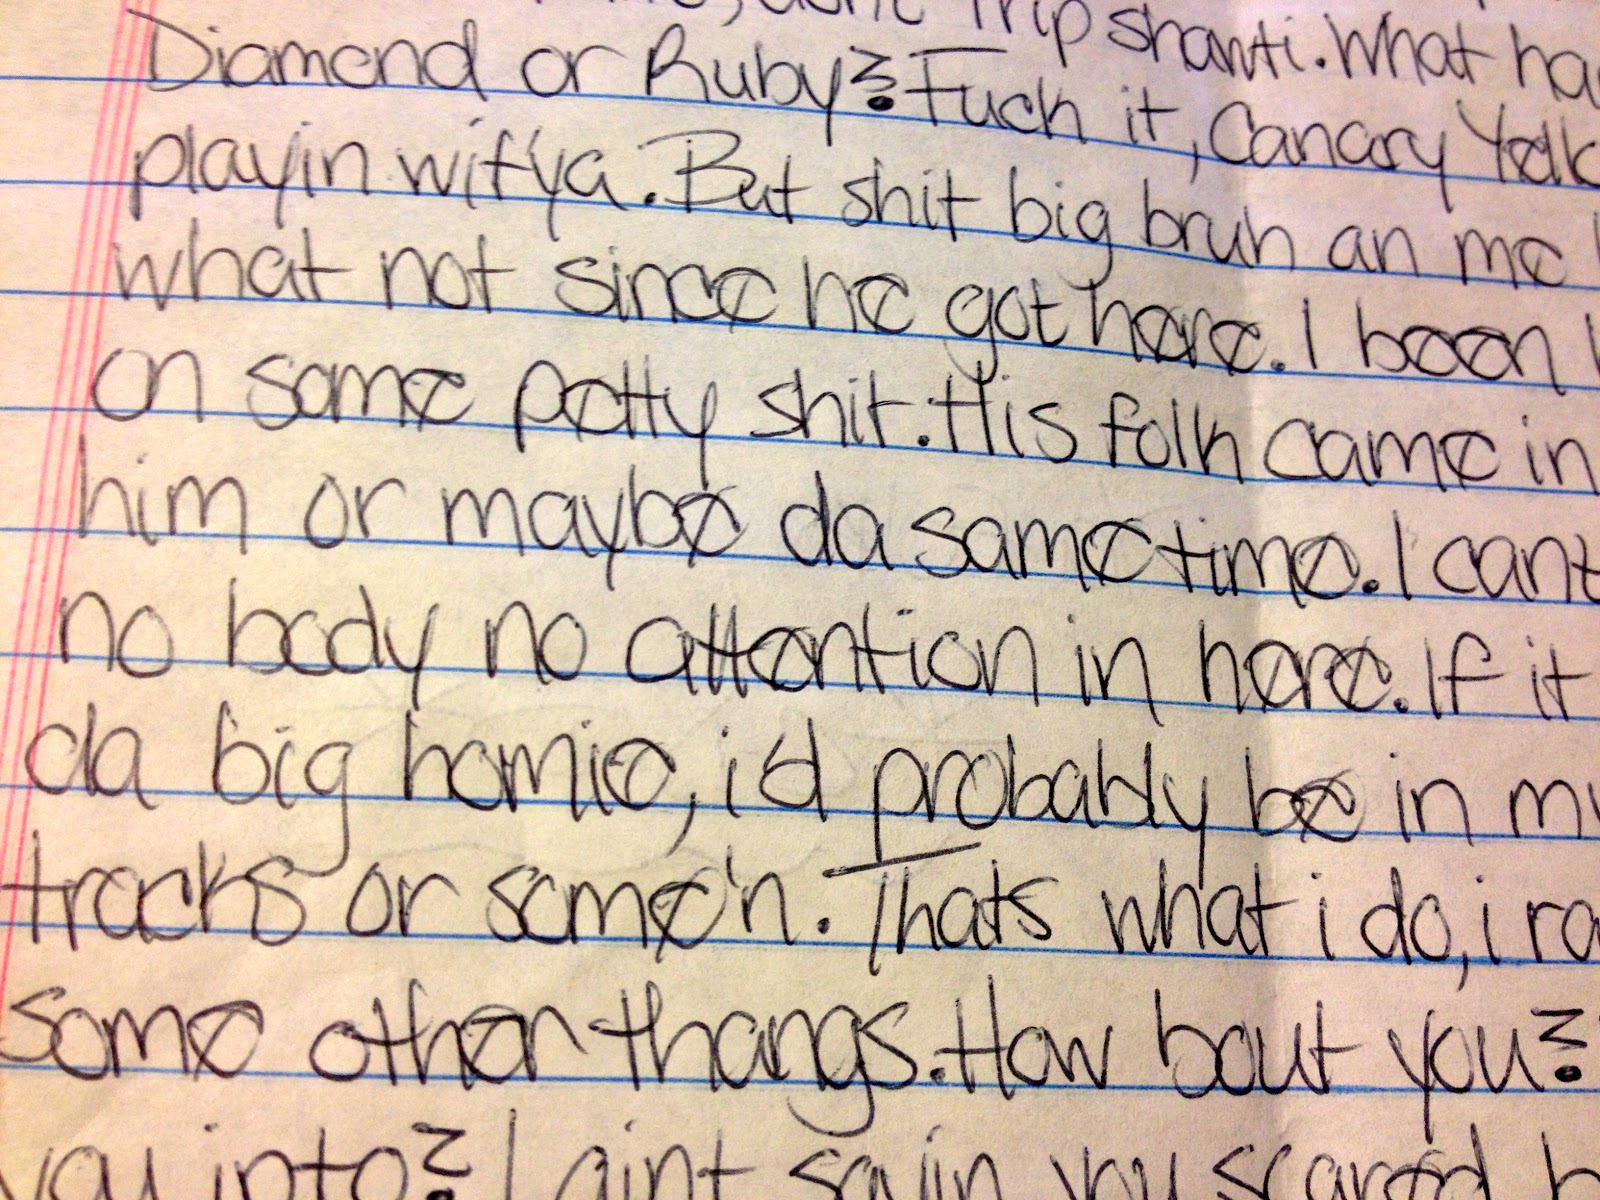 dont Trip shawti. What ha
Diamond or Ruby? Fuck it, Canary Yello
playin wit'ya. But shit big bruh an me
what not since he got here. I been
on some petty shit. His folk came in
him or maybe da same time. I cant
no body no attention in here. If it
da big homie, i'd probably be in my
tracks or some'n. Thats what i do, i ra
some other thangs. How bout you?
you into? I aint sayin you scared b